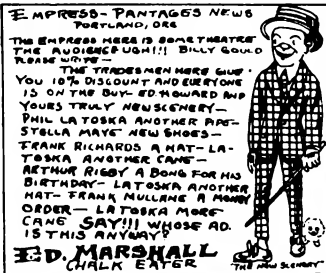 EMPRESS-PANTAGES NEWS
PORTLAND, ORE
THE EMPRESS HERE IS SOME THEATRE
THE AUDIENCE UGH!!! BILLY GOULD
PLEASE WRITE—
THE TRADESMEN HERE GIVE
YOU 10% DISCOUNT AND EVERYONE
IS ON THE BUY- ED. HOWARD AND
YOURS TRULY NEW SCENERY—
PHIL LA TOSKA ANOTHER PIPE-
STELLA MAYE NEW SHOES—
FRANK RICHARDS A HAT- LA-
TOSKA ANOTHER CANE-
ARTHUR RIGBY A BONG FOR HIS
BIRTHDAY- LA TOSKA ANOTHER
HAT- FRANK MULLANE A MONEY
ORDER- LA TOSKA MORE
CANE SAY!!! WHOSE AD.
IS THIS ANYWAY?
ED. MARSHALL
CHALK EATER
THE NEW SCENERY